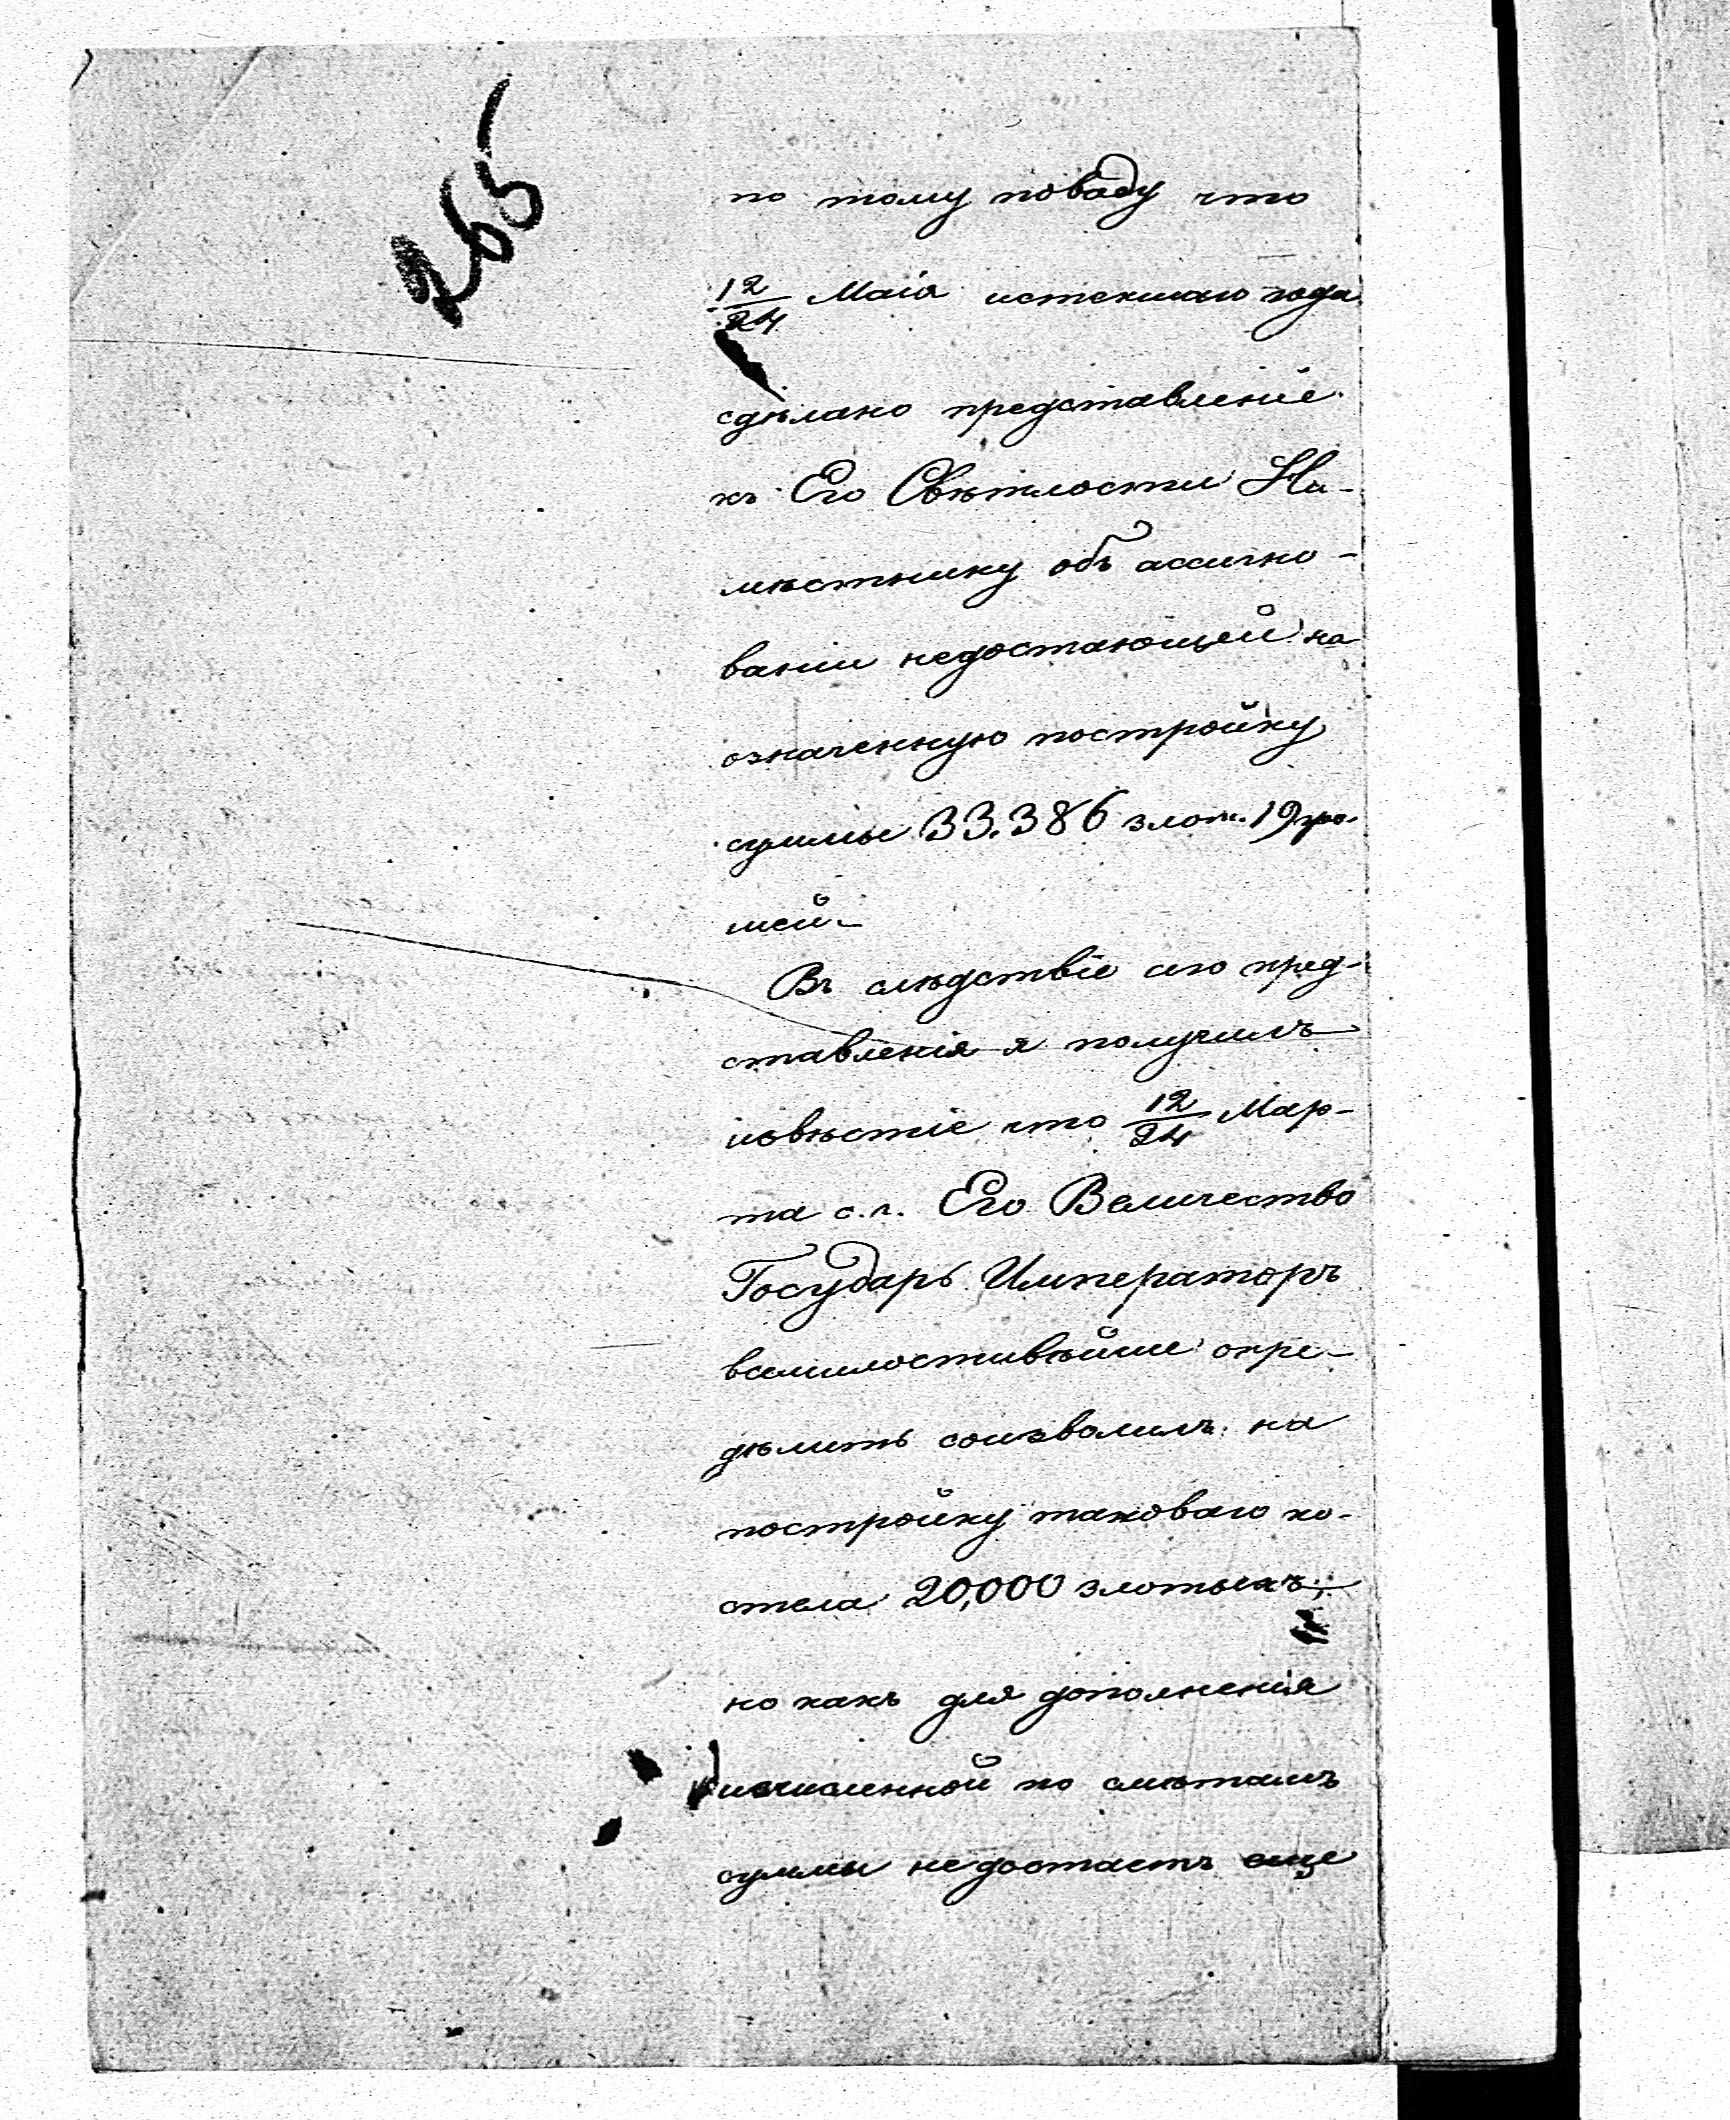 265
по тому поваду что
12/24 Маія истекшаго года
сдѣлано представленіе
къ Его Свѣтлости На-
мѣстнику объ ассигно-
ваніи недостающей на
означенную постройку
суммы 33.386 злот. 19 гро-
шей.
Въ слѣдствіе сего пред-
ставленія я получилъ
извѣстіе что 12/24 Мар-
та с. г. Его Величество
Государь Императоръ
всемилостивѣйше опре-
дѣлить соизволилъ на
постройку таковаго ко-
стела 20,000 злотыхъ;
но какъ для дополненія
исчисленной по смѣтамъ
суммы недостаетъ еще